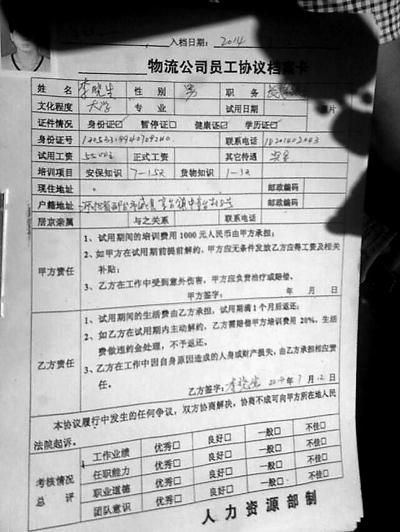 入档日期： 2014
物流公司员工协议档案卡
姓 名 李晓生 性 别 男 职 务
文化程度 大学 专 业 试用日期 片
证件情况 身份证☑ 暂停证□ 健康证☑ 学历证☑
身份证号 联系电话
试用工资 正式工资 其它待遇
培训项目 安保知识 7-15天 货物知识 1-3天
现住地址 邮政编码
户籍地址 邮政编码
居京亲属 与之关系 联系电话
甲方责任
1、试用期间的培训费用 1000 元人民币由甲方承担；
2、如甲方在试用期前提前解约，甲方应无条件发放乙方应得工资及相关
补贴；
3、乙方在工作中受到意外伤害，甲方应负责治疗或赔偿。
甲方签字： 年 月 日
乙方责任
1、试用期间的生活费由乙方承担，试用期满 1 个月后返还；
2、如乙方在试用期内主动解约，乙方需赔偿甲方培训费用 20%，生活
费做违约金处理，不予返还。
3、乙方在工作中因自身原因造成的人身或财产损失，由乙方承担相应责
任。
乙方签字： 李晓生 2014年7月12日
本协议履行中发生的任何争议，双方协商解决，协商不成可向甲方所在地人民
法院起诉。
考核情况
总 评
工作业绩 优秀□ 良好□ 一般□ 不佳□
任职能力 优秀□ 良好□ 一般□ 不佳□
职业道德 优秀□ 良好□ 一般□ 不佳□
团队意识 优秀□ 良好□ 一般□ 不佳□
人力资源部制